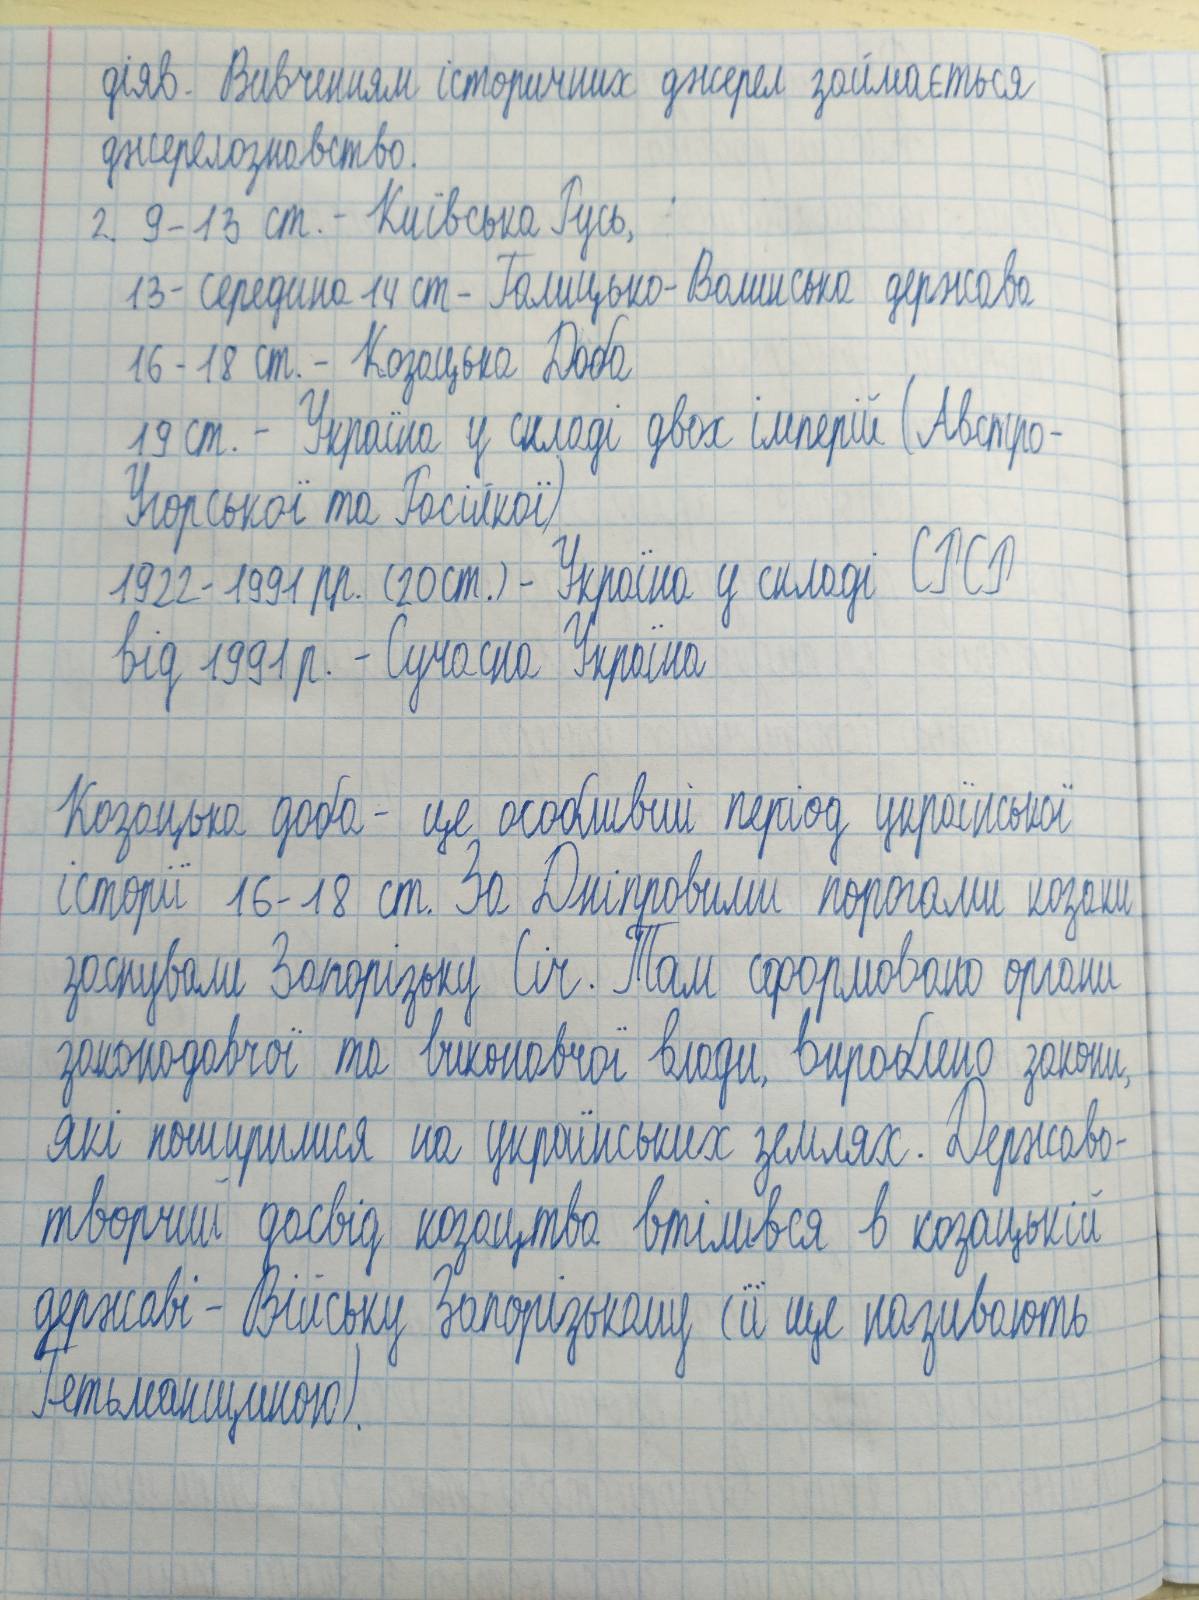 діяв. Вивченням історичних джерел займається
джерелознавство.
2. 9-13 ст. - Київська Русь,
13- середина 14 ст - Галицько-Волинська держава
16-18 ст. - Козацька Доба
19 ст. - Україна у складі двох імперій (Австро-
Угорської та Російкої)
1922-1991 рр. (20 ст.) - Україна у складі СРСР
від 1991 р. - Сучасна Україна
Козацька доба - це особливий період української
історії 16-18 ст. За Дніпровими порогами козаки
заснували Запорізьку Січ. Там сформовано органи
законодавчої та виконавчої влади, вироблено закони,
які поширилися на українських землях. Державо-
творчий досвід козацтва втілився в козацькій
державі - Війську Запорізькому (її ще називають
Гетьманщиною).